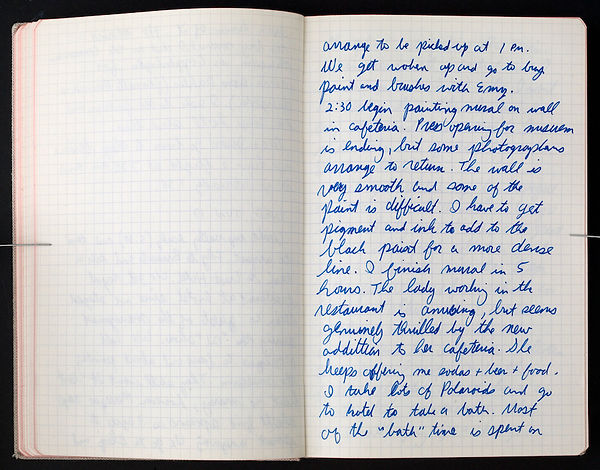 arrange to be picked up at 1 PM.
We get woken up and go to buy
paint and brushes with Emy.
2:30 begin painting mural on wall
in cafeteria. Press opening for museum
is ending, but some photographers
arrange to return. The wall is
very smooth and some of the
paint is difficult. I have to get
pigment and ink to add to the
black paint for a more dense
line. I finish mural in 5
hours. The lady working in the
restaurant is amusing, but seems
genuinely thrilled by the new
addittian to her cafeteria. She
keeps offering me sodas + beer + food.
I take lots of Polaroids and go
to hotel to take a bath. Most
of the "bath" time is spent on